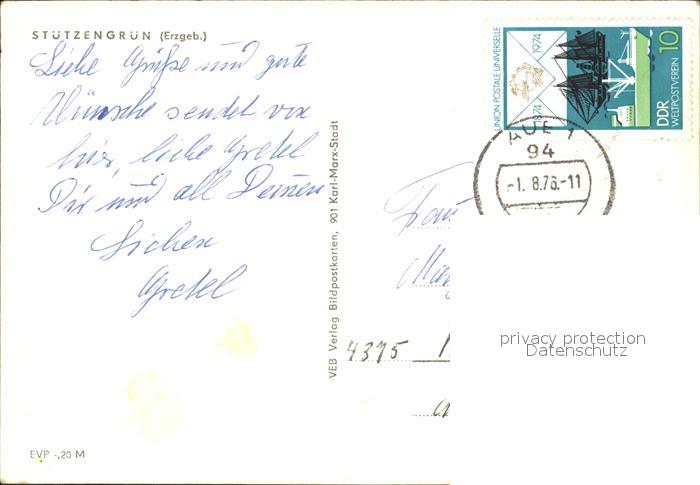 STÜTZENGRÜN (Erzgeb.)
Liebe Grüße und gute
Wünsche sendet von
hier, liebe Gretel
Dir und all Deinen
Lieben
Gretel
EVP -,20 M
VEB Verlag Bildpostkarten, 901 Karl-Marx-Stadt
UNION POSTALE UNIVERSELLE
1874 1974
10
DDR
WELTPOSTVEREIN
AUE 1
94
-1. 8.76.-11
4375
privacy protection
Datenschutz